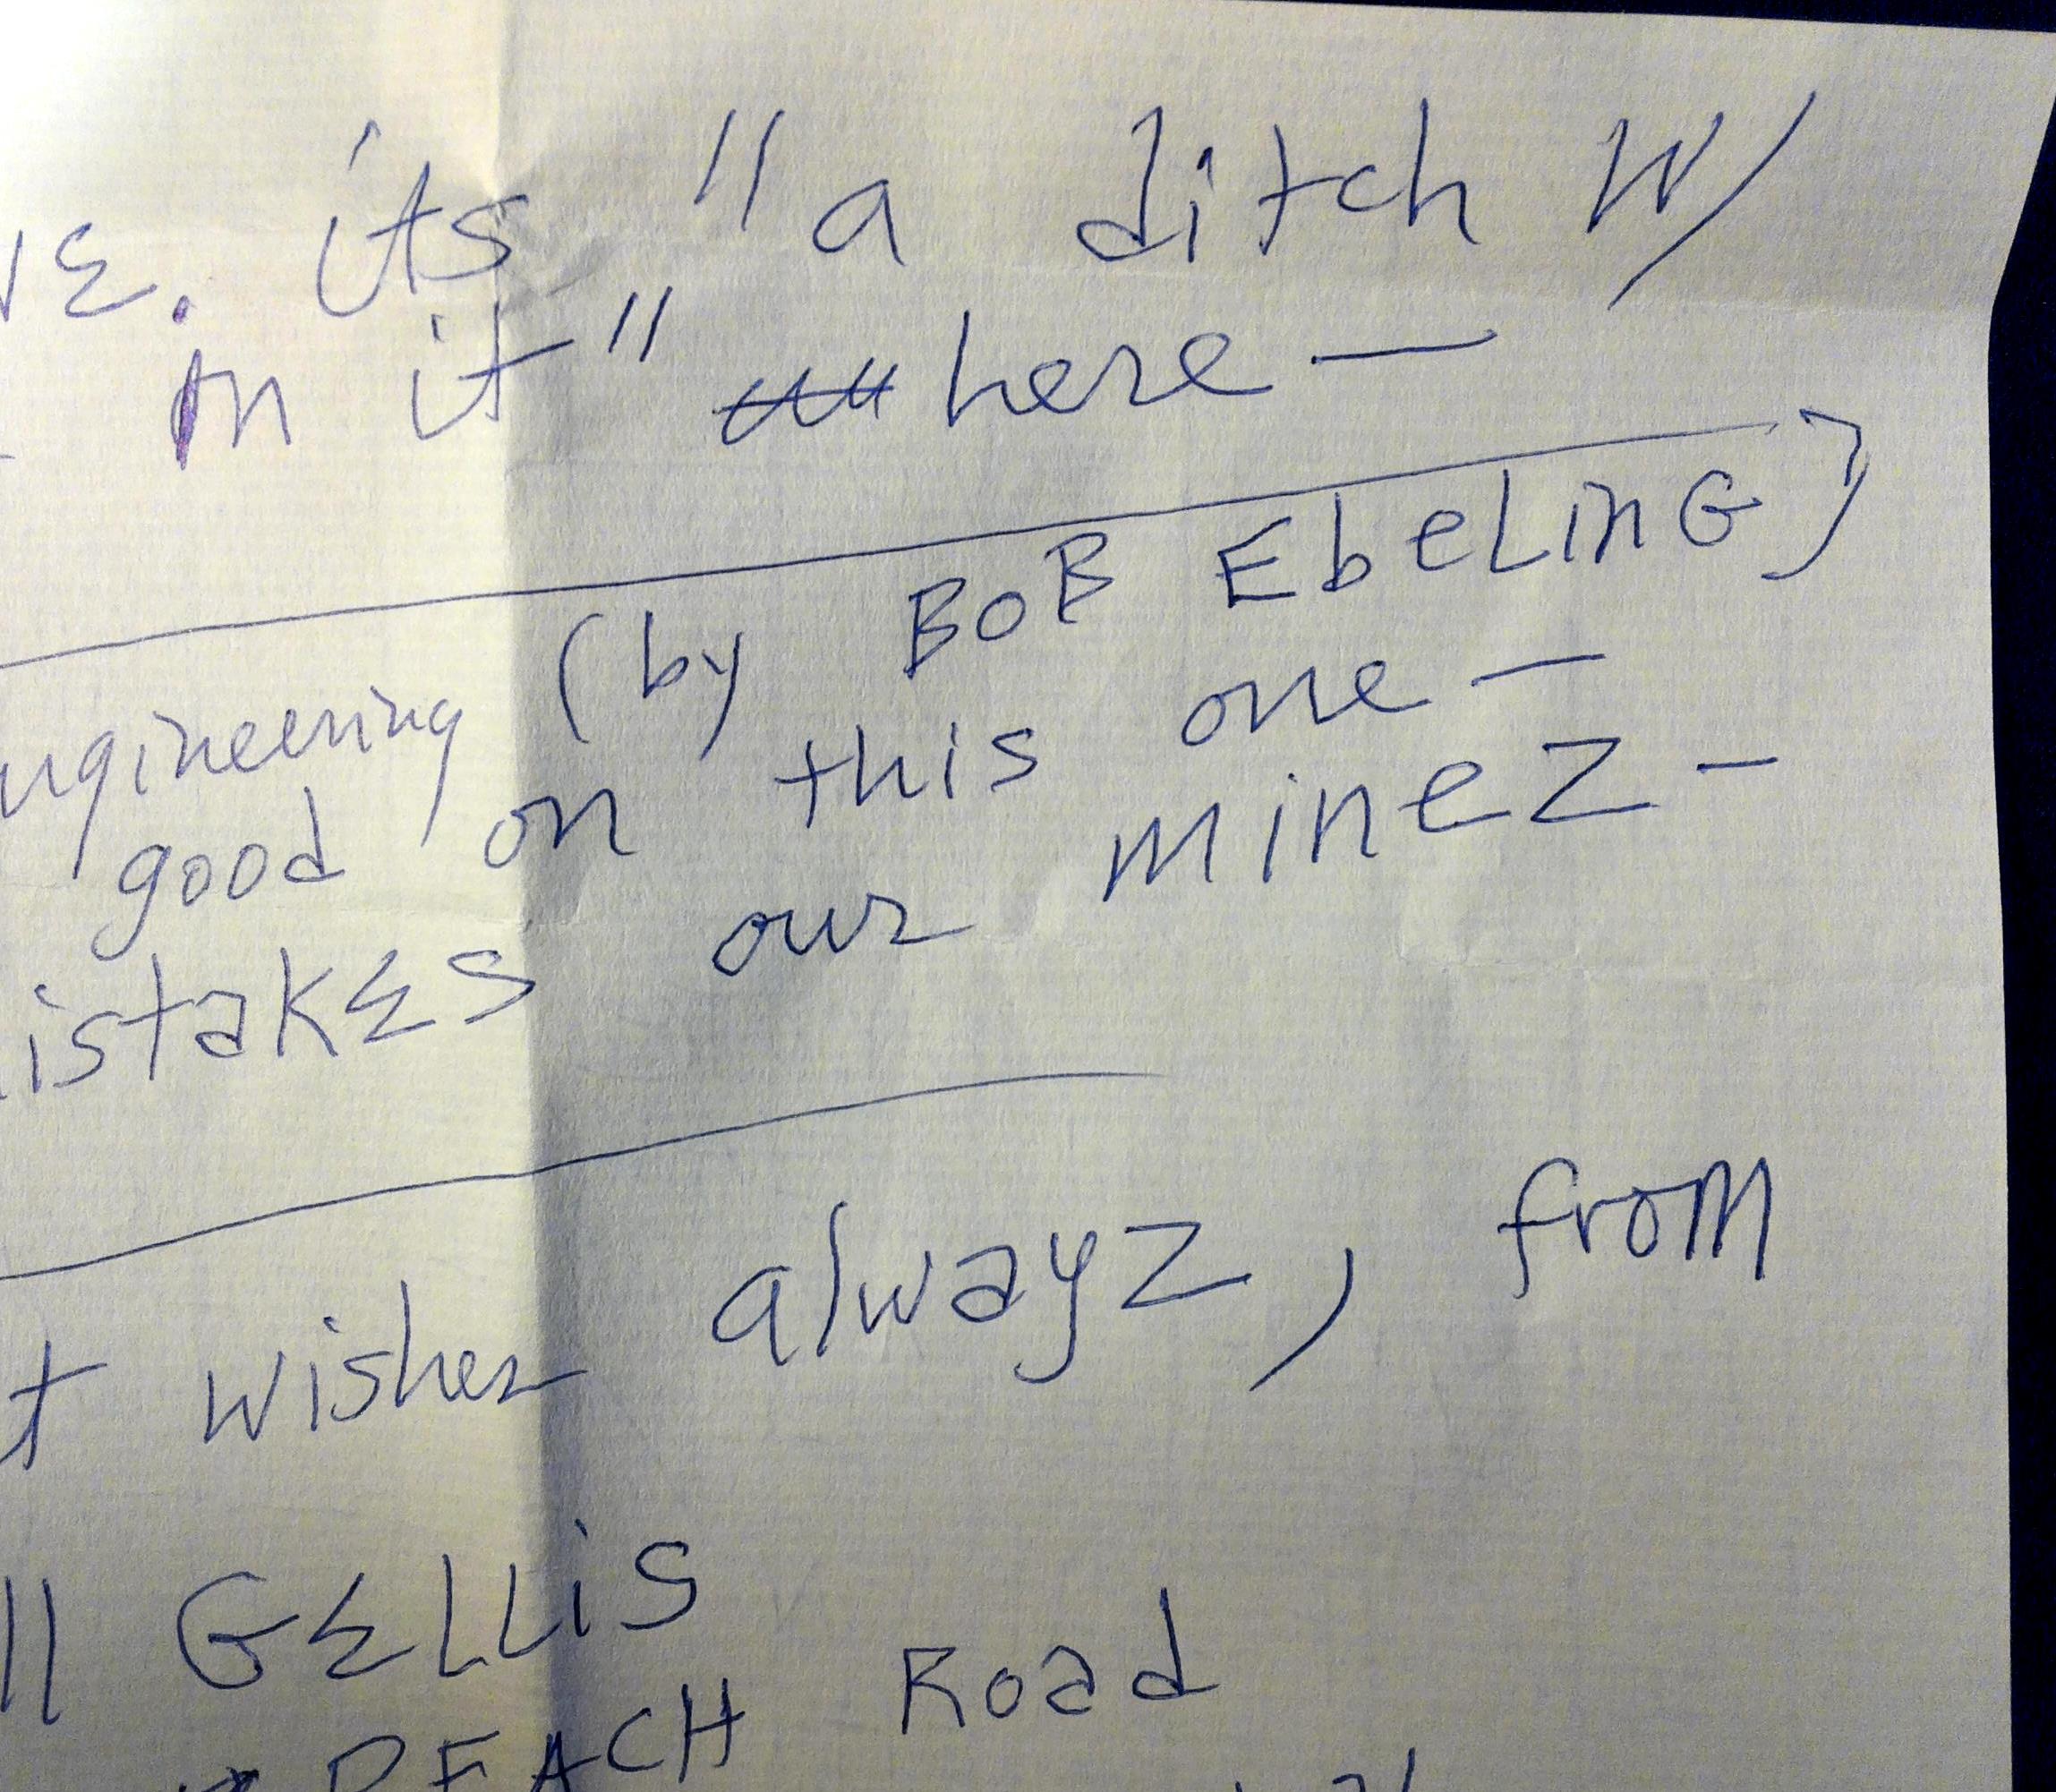 its "a ditch w/
in it" here —
engineering (by BOB EbeLinG)
good on this one —
istakes our minez -
t wishes alwayz, from
ll GELLiS
BEACH Road